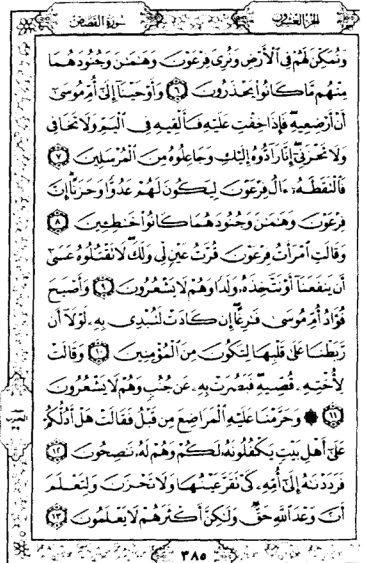 الجزء العشرون سورة القصص
وَنُمَكِّنَ لَهُمْ فِي ٱلْأَرْضِ وَنُرِيَ فِرْعَوْنَ وَهَٰمَٰنَ وَجُنُودَهُمَا
مِنْهُم مَّا كَانُوا۟ يَحْذَرُونَ ٦ وَأَوْحَيْنَآ إِلَىٰٓ أُمِّ مُوسَىٰٓ
أَنْ أَرْضِعِيهِ ۖ فَإِذَا خِفْتِ عَلَيْهِ فَأَلْقِيهِ فِي ٱلْيَمِّ وَلَا تَخَافِي
وَلَا تَحْزَنِيٓ ۖ إِنَّا رَآدُّوهُ إِلَيْكِ وَجَاعِلُوهُ مِنَ ٱلْمُرْسَلِينَ ٧
فَٱلْتَقَطَهُۥٓ ءَالُ فِرْعَوْنَ لِيَكُونَ لَهُمْ عَدُوًّا وَحَزَنًا ۗ إِنَّ
فِرْعَوْنَ وَهَٰمَٰنَ وَجُنُودَهُمَا كَانُوا۟ خَٰطِـِٔينَ ٨
وَقَالَتِ ٱمْرَأَتُ فِرْعَوْنَ قُرَّتُ عَيْنٍ لِّي وَلَكَ ۖ لَا تَقْتُلُوهُ عَسَىٰٓ
أَن يَنفَعَنَآ أَوْ نَتَّخِذَهُۥ وَلَدًا وَهُمْ لَا يَشْعُرُونَ ٩ وَأَصْبَحَ
فُؤَادُ أُمِّ مُوسَىٰ فَٰرِغًا ۖ إِن كَادَتْ لَتُبْدِي بِهِۦ لَوْلَآ أَن
رَّبَطْنَا عَلَىٰ قَلْبِهَا لِتَكُونَ مِنَ ٱلْمُؤْمِنِينَ ١٠ وَقَالَتْ
لِأُخْتِهِۦ قُصِّيهِ ۖ فَبَصُرَتْ بِهِۦ عَن جُنُبٍ وَهُمْ لَا يَشْعُرُونَ
١١ ۞ وَحَرَّمْنَا عَلَيْهِ ٱلْمَرَاضِعَ مِن قَبْلُ فَقَالَتْ هَلْ أَدُلُّكُمْ
عَلَىٰٓ أَهْلِ بَيْتٍ يَكْفُلُونَهُۥ لَكُمْ وَهُمْ لَهُۥ نَٰصِحُونَ ١٢
فَرَدَدْنَٰهُ إِلَىٰٓ أُمِّهِۦ كَيْ تَقَرَّ عَيْنُهَا وَلَا تَحْزَنَ وَلِتَعْلَمَ
أَنَّ وَعْدَ ٱللَّهِ حَقٌّ وَلَٰكِنَّ أَكْثَرَهُمْ لَا يَعْلَمُونَ ١٣
٣٨٥